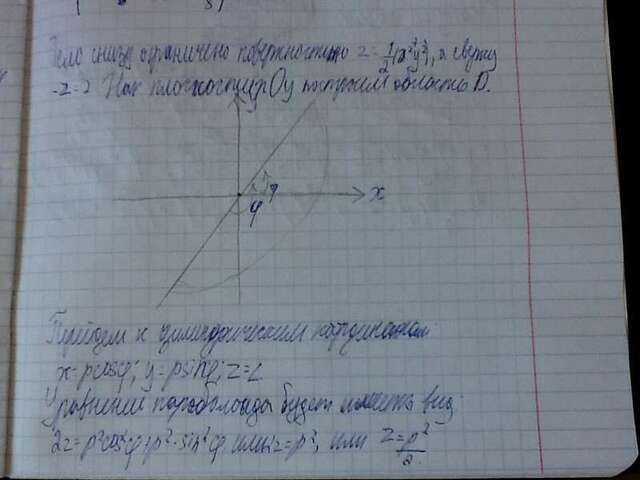 Тело снизу ограничено поверхностью z=1/2(x²+y²), а сверху
-z=2 На плоскости xOy построим область D.
x
φ
Перейдем к цилиндрическим координатам
x=ρcosφ; y=ρsinφ; z=z
Уравнение параболоида будет иметь вид
2z=ρ²cos²φ+ρ²·sin²φ или 2z=ρ², или z=ρ²/2